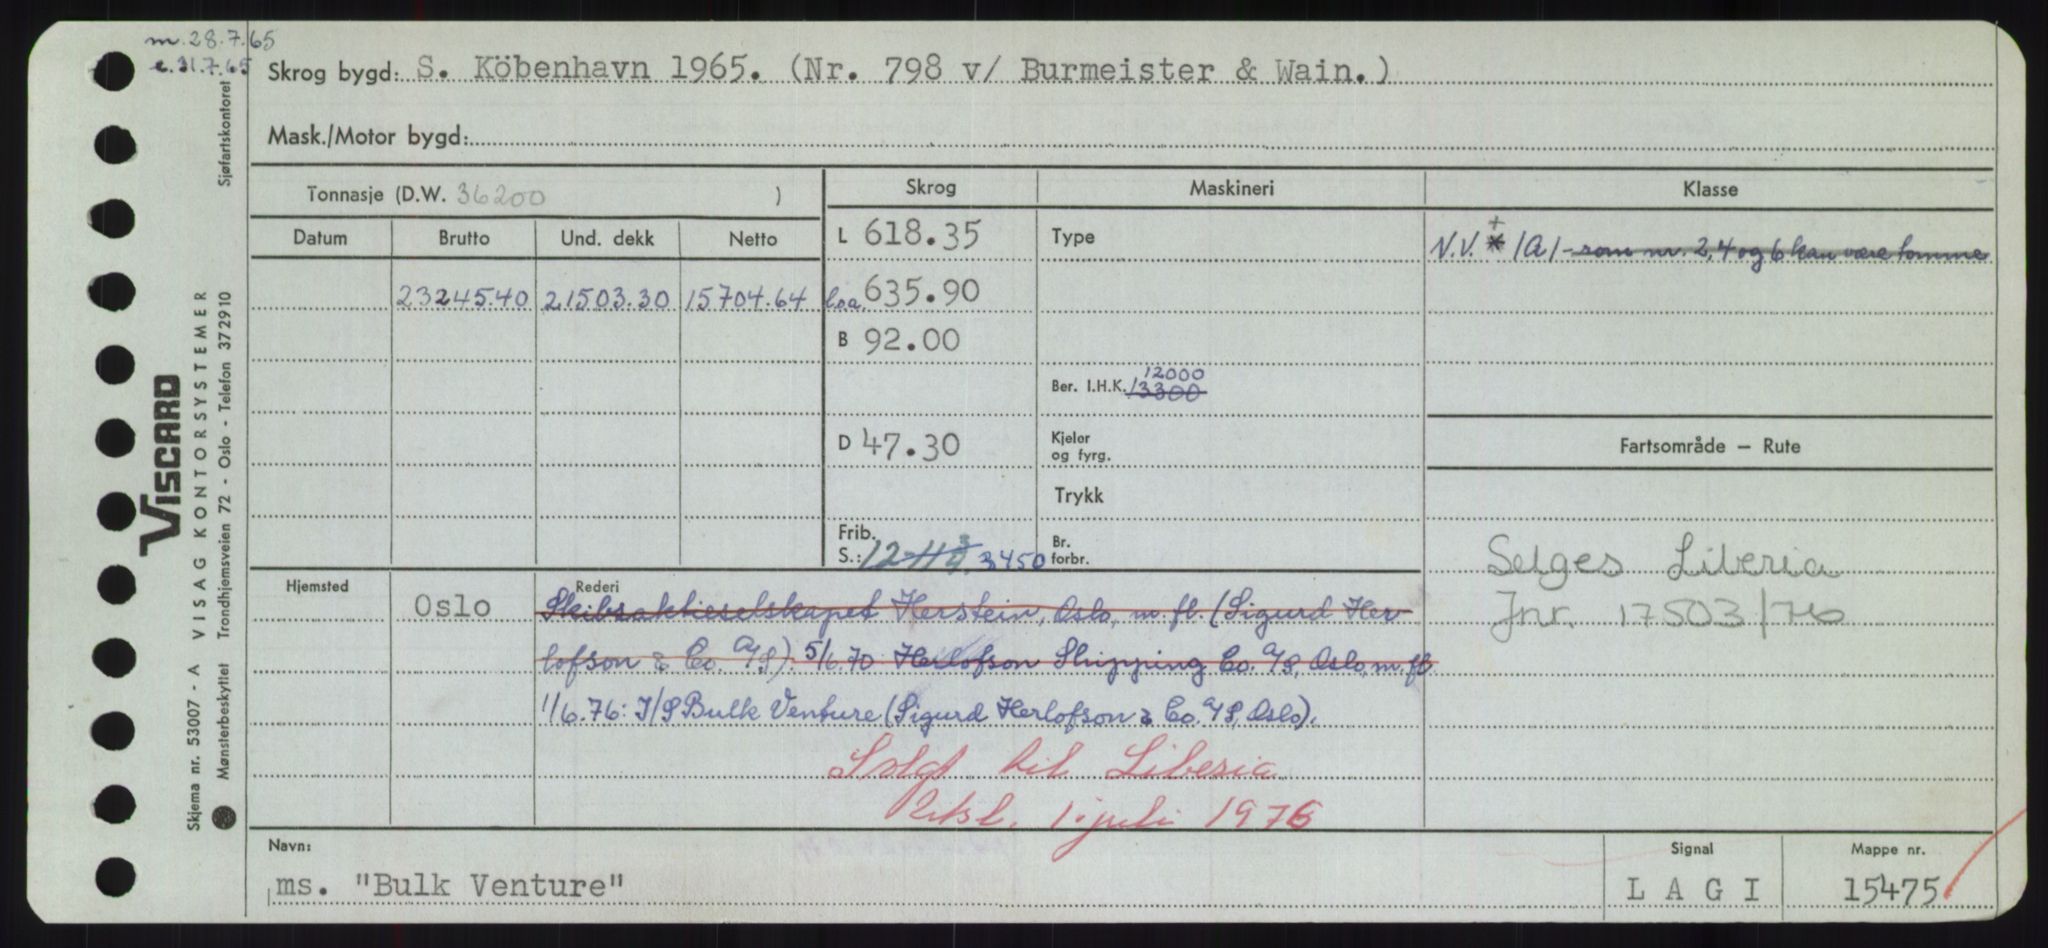 m. 28.7.65
e. 31.7.65
Skrog bygd: S. Köbenhavn 1965. (Nr. 798 v/ Burmeister & Wain.)
Mask./Motor bygd:
Tonnasje (D.W. 36200 )
Skrog
Maskineri
Klasse
Datum Brutto Und. dekk Netto
L 618.35
Type
N.V. + * (A) - rom nr. 2, 4 og 6 kan være tomme
23245.40 21503.30 15704.64
loa. 635.90
B 92.00
12000
Ber. I.H.K. 13300
D 47.30
Kjeler
og fyrg.
Fartsområde — Rute
Trykk
Frib.
S.: 12-11 3/4 3450
Br.
forbr.
Selges Liberia
Jnr. 17503/76
Hjemsted
Rederi
Oslo
Skibsaktieselskapet Herstein, Oslo, m. fl. (Sigurd Her-
lofson & Co. A/S). 5/6.70: Herlofson Shipping Co. A/S, Oslo, m. fl.
1/6.76: I/S Bulk Venture (Sigurd Herlofson & Co. A/S, Oslo).
Solgt til Liberia
Utsl. 1. juli 1976
Navn:
ms. "Bulk Venture"
Signal
L A G I
Mappe nr.
15475
Sjøfartskontoret
VISCARD
VISAG KONTORSYSTEMER
Trondhjemsveien 72 - Oslo - Telefon 372910
Skjema nr. 53007 - A
Mønsterbeskyttet